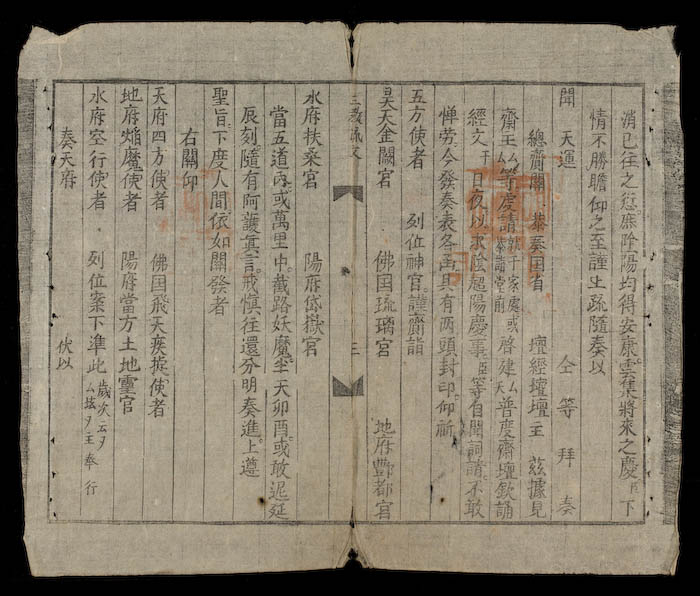 消已往之愆庶陰陽均得安康雲集將來之慶臣下
情不勝瞻仰之至謹上疏隨奏以
聞 天運 仝等拜奏
總齋關 恭奏国省 壇經壇壇主 茲據見
齋主厶厶等處請就于家處或恭詣堂前啓建厶天普度齋壇欽誦
經文于日夜以求陰超陽慶事臣等自聞詞請不敢
憚勞今發奏表各函具有两頭封印仰祈
五方使者 列位神官謹齎詣
昊天金闕宮 佛囯琉璃宮 地府酆都宮
三教疏文 三
水府扶桒宮 陽府岱嶽宮
當五道丙或萬里中截路妖魔半天卯酉或敢遲延
辰刻隨有阿護真言戒慎往還分明奏進上遵
聖旨下度人間依如關發者
右關仰
天府四方使者 佛囯飛天疾捷使者
地府焰魔使者 陽府當方土地靈官
水府空行使者 列位案下準此歲次云ヲ厶壇ヲ主奉行
奏天府 伏以